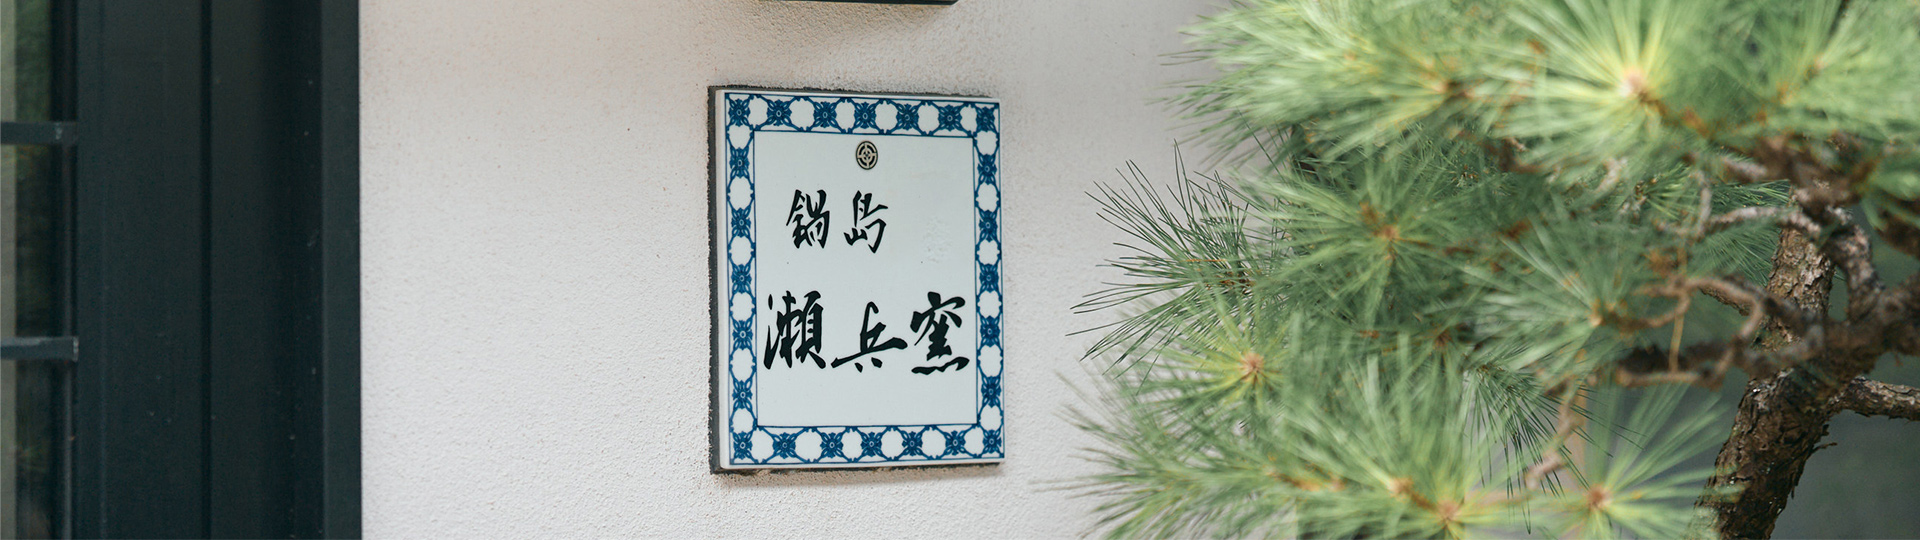 鍋島
瀬兵窯